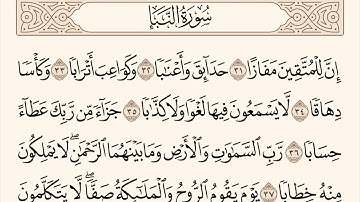 سُورَةُ النَّبَإِ
إِنَّ لِلْمُتَّقِينَ مَفَازًا ٣١ حَدَآئِقَ وَأَعْنَٰبًا ٣٢ وَكَوَاعِبَ أَتْرَابًا ٣٣ وَكَأْسًا
دِهَاقًا ٣٤ لَّا يَسْمَعُونَ فِيهَا لَغْوًا وَلَا كِذَّٰبًا ٣٥ جَزَآءً مِّن رَّبِّكَ عَطَآءً
حِسَابًا ٣٦ رَّبِّ ٱلسَّمَٰوَٰتِ وَٱلْأَرْضِ وَمَا بَيْنَهُمَا ٱلرَّحْمَٰنِ ۖ لَا يَمْلِكُونَ
مِنْهُ خِطَابًا ٣٧ يَوْمَ يَقُومُ ٱلرُّوحُ وَٱلْمَلَٰٓئِكَةُ صَفًّا ۖ لَّا يَتَكَلَّمُونَ